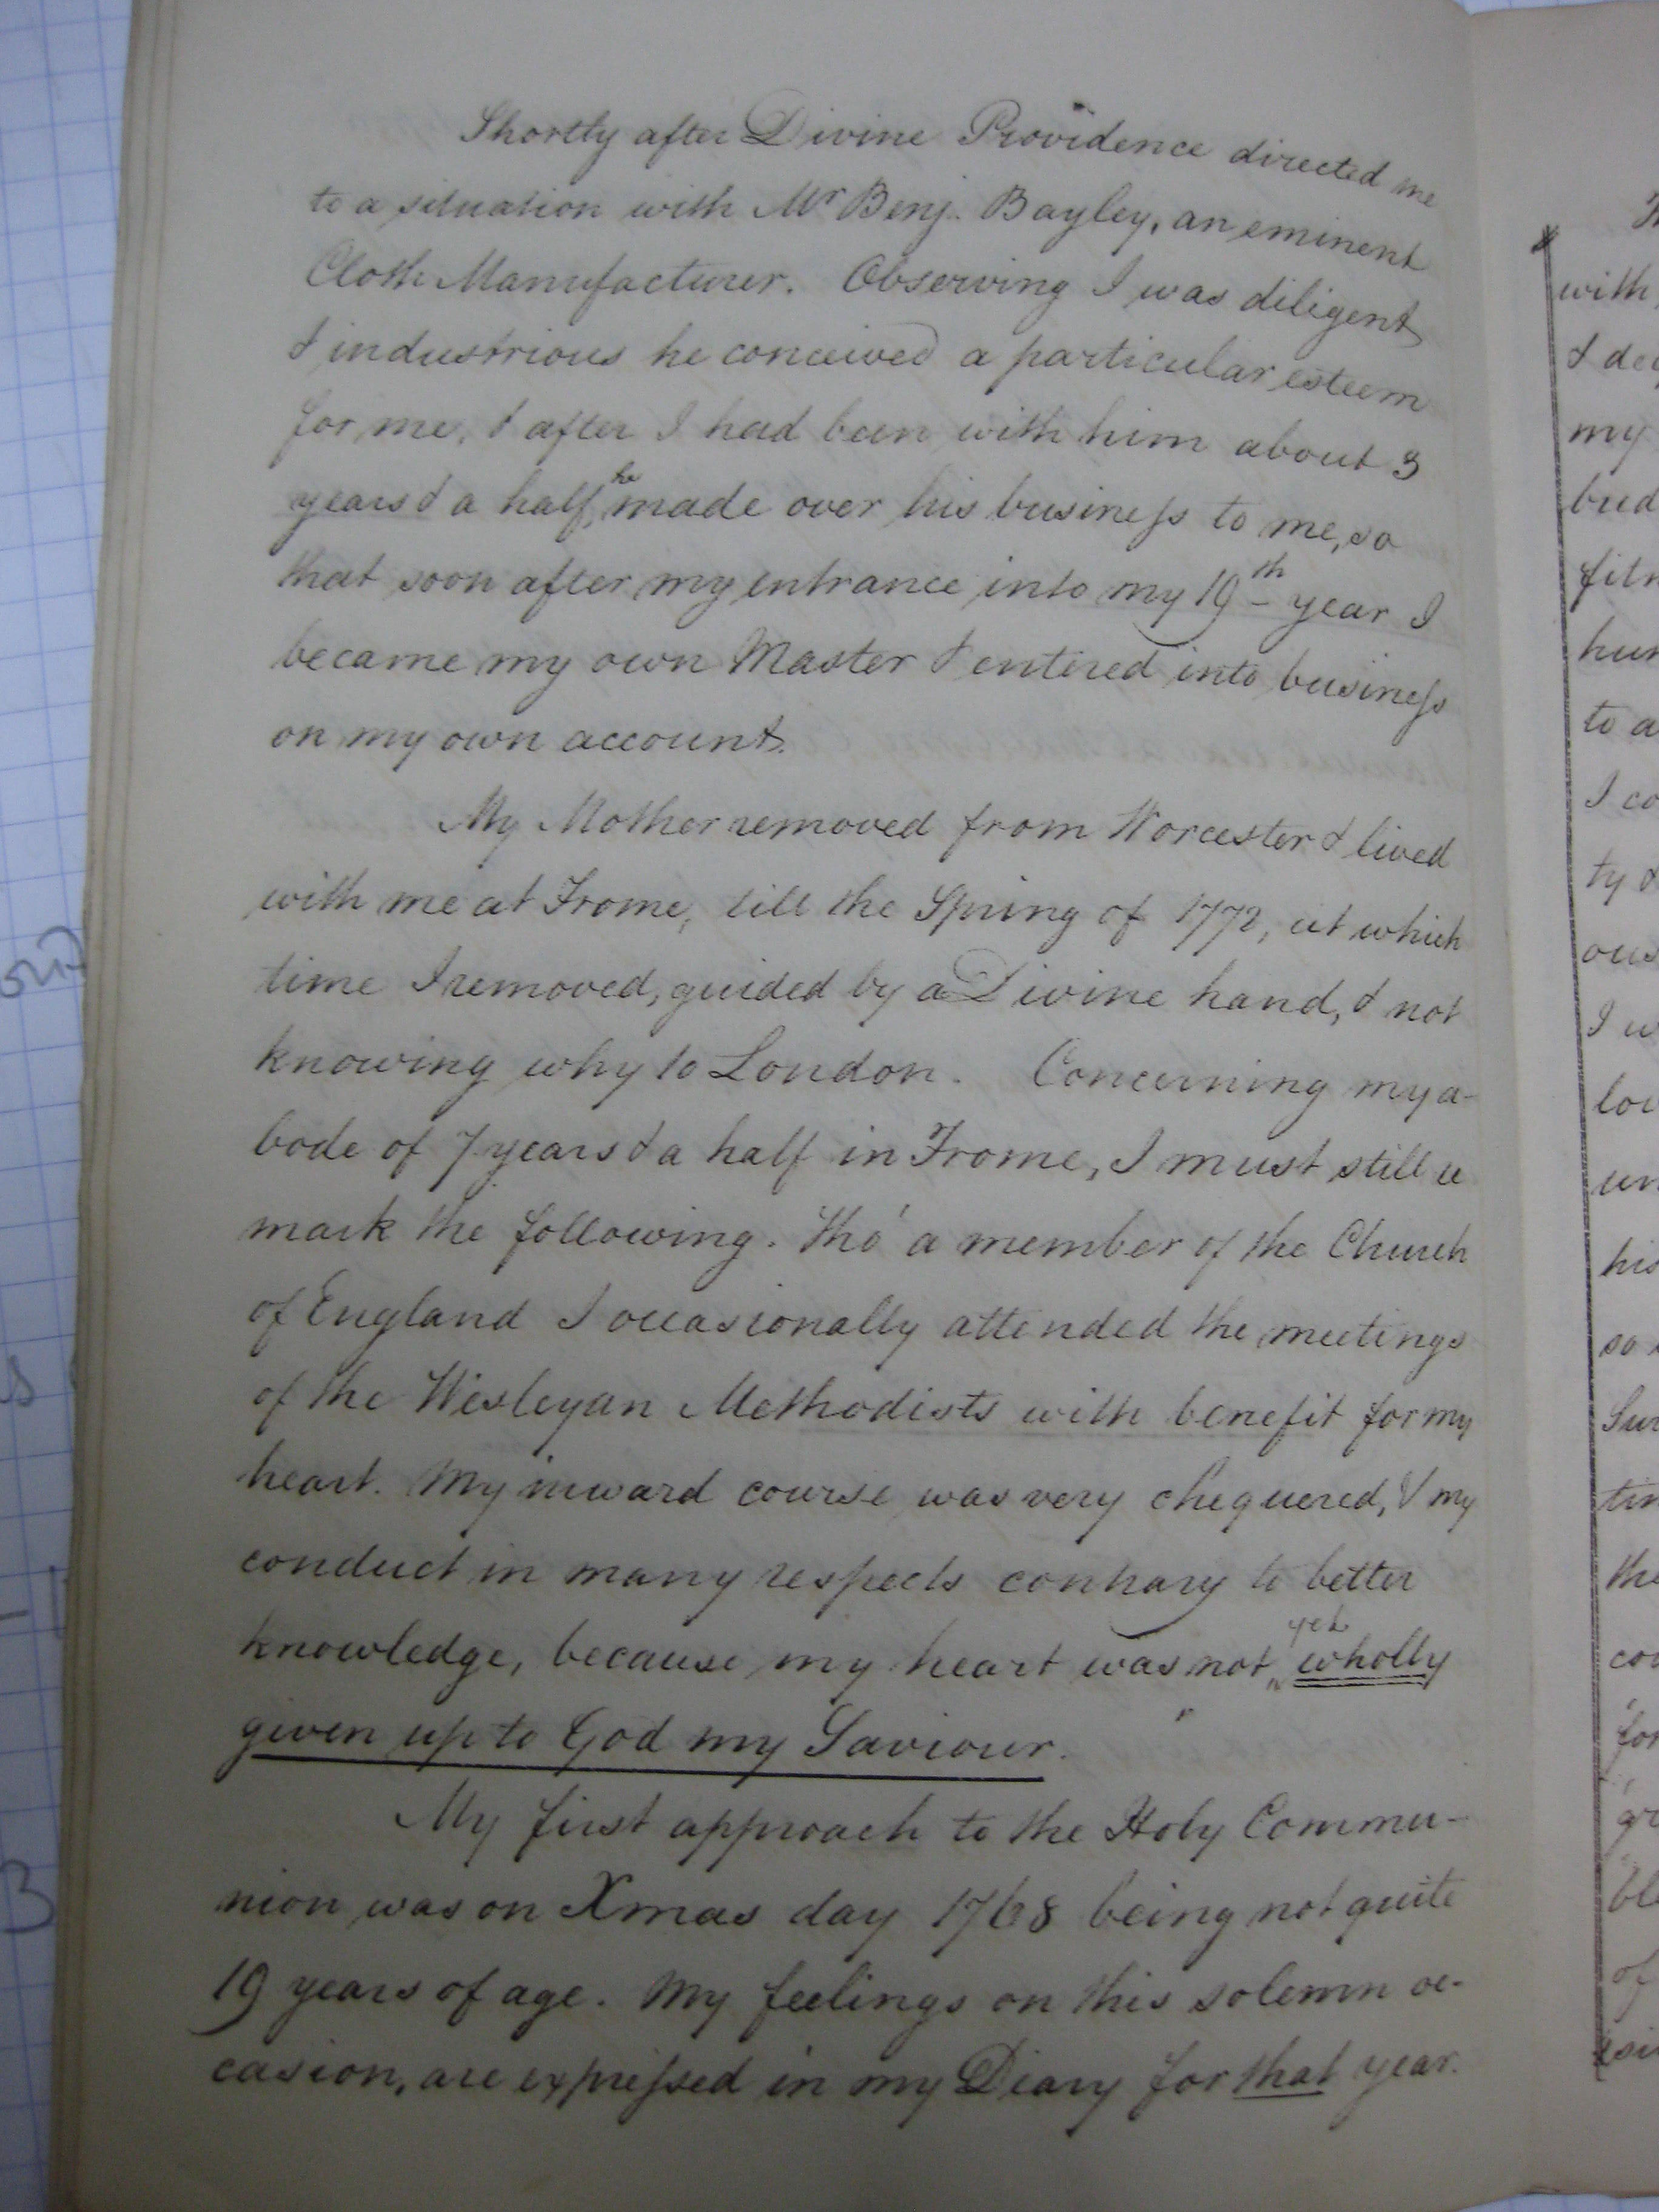 Shortly after Divine Providence directed me
to a situation with Mr Benj. Bayley, an eminent
Cloth Manufacturer. Observing I was diligent
& industrious he conceived a particular esteem
for me, & after I had been with him about 3
years & a half, he made over his business to me, so
that soon after my entrance into my 19th year I
became my own Master & entered into business
on my own account.
My Mother removed from Worcester & lived
with me at Frome, till the Spring of 1772, at which
time I removed, guided by a Divine hand, & not
knowing why to London. Concerning my a-
bode of 7 years & a half in Frome, I must still re
mark the following. Tho' a member of the Church
of England I occasionally attended the meetings
of the Wesleyan Methodists with benefit for my
heart. My inward course was very chequered, & my
conduct in many respects contrary to better
knowledge, because my heart was not yet wholly
given up to God my Saviour.
My first approach to the Holy Commu-
nion was on Xmas day 1768 being not quite
19 years of age. My feelings on this solemn oc-
casion, are expressed in my Diary for that year.
with
& de
my
bud
fitn
hur
to a
I co
ty &
ous
I w
lov
un
his
so
Sur
tin
the
con
for
gr
ble
of